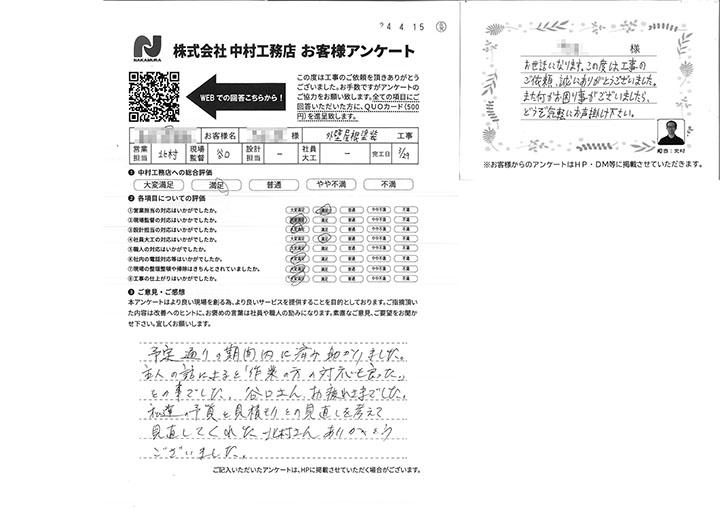 24.4.15
NAKAMURA
株式会社 中村工務店 お客様アンケート
WEBでの回答こちらから！
この度は工事のご依頼を頂きありがとう
ございました。お手数ですがアンケートの
ご協力をお願い致します。全ての項目にご
回答いただいた方に、QUOカード(500
円)を進呈致します。
お客様名 様 外壁屋根塗装 工事
営業担当 北村 現場監督 谷口 設計担当 － 社員大工 － 完工日 3/29
❶ 中村工務店への総合評価
大変満足 満足 普通 やや不満 不満
❷ 各項目についての評価
①営業担当の対応はいかがでしたか。 大変満足 満足 普通 やや不満 不満
②現場監督の対応はいかがでしたか。 大変満足 満足 普通 やや不満 不満
③設計担当の対応はいかがでしたか。 大変満足 満足 普通 やや不満 不満
④社員大工の対応はいかがでしたか。 大変満足 満足 普通 やや不満 不満
⑤職人の対応はいかがでしたか。 大変満足 満足 普通 やや不満 不満
⑥社内の電話対応等はいかがでしたか。 大変満足 満足 普通 やや不満 不満
⑦現場の整理整頓や掃除はきちんとされていましたか。 大変満足 満足 普通 やや不満 不満
⑧工事の仕上がりはいかがでしたか。 大変満足 満足 普通 やや不満 不満
❸ ご意見・ご感想
本アンケートはより良い現場を創る為、より良いサービスを提供することを目的としております。ご指摘頂
いた内容は改善へのヒントに、お褒めの言葉は社員や職人の励みになります。素直なご意見、ご要望をお聞か
せ下さい。宜しくお願いします。
予定通りの期間内に済み助かりました。
主人の話によると「作業の方の対応も良った。」
との事でした。谷口さん、お疲れさまでした。
私達の予算と見積もりとの見直しを考えて
見直してくれた北村さんありがとう
ございました。
ご記入いただいたアンケートは、HPに掲載させていただく場合がございます。
様
お世話になります。この度は工事の
ご依頼、誠にありがとうございました。
また何かお困り事がございましたら、
どうぞ気軽にお声掛け下さい。
担当：北村
※お客様からのアンケートはHP・DM等に掲載させていただきます。